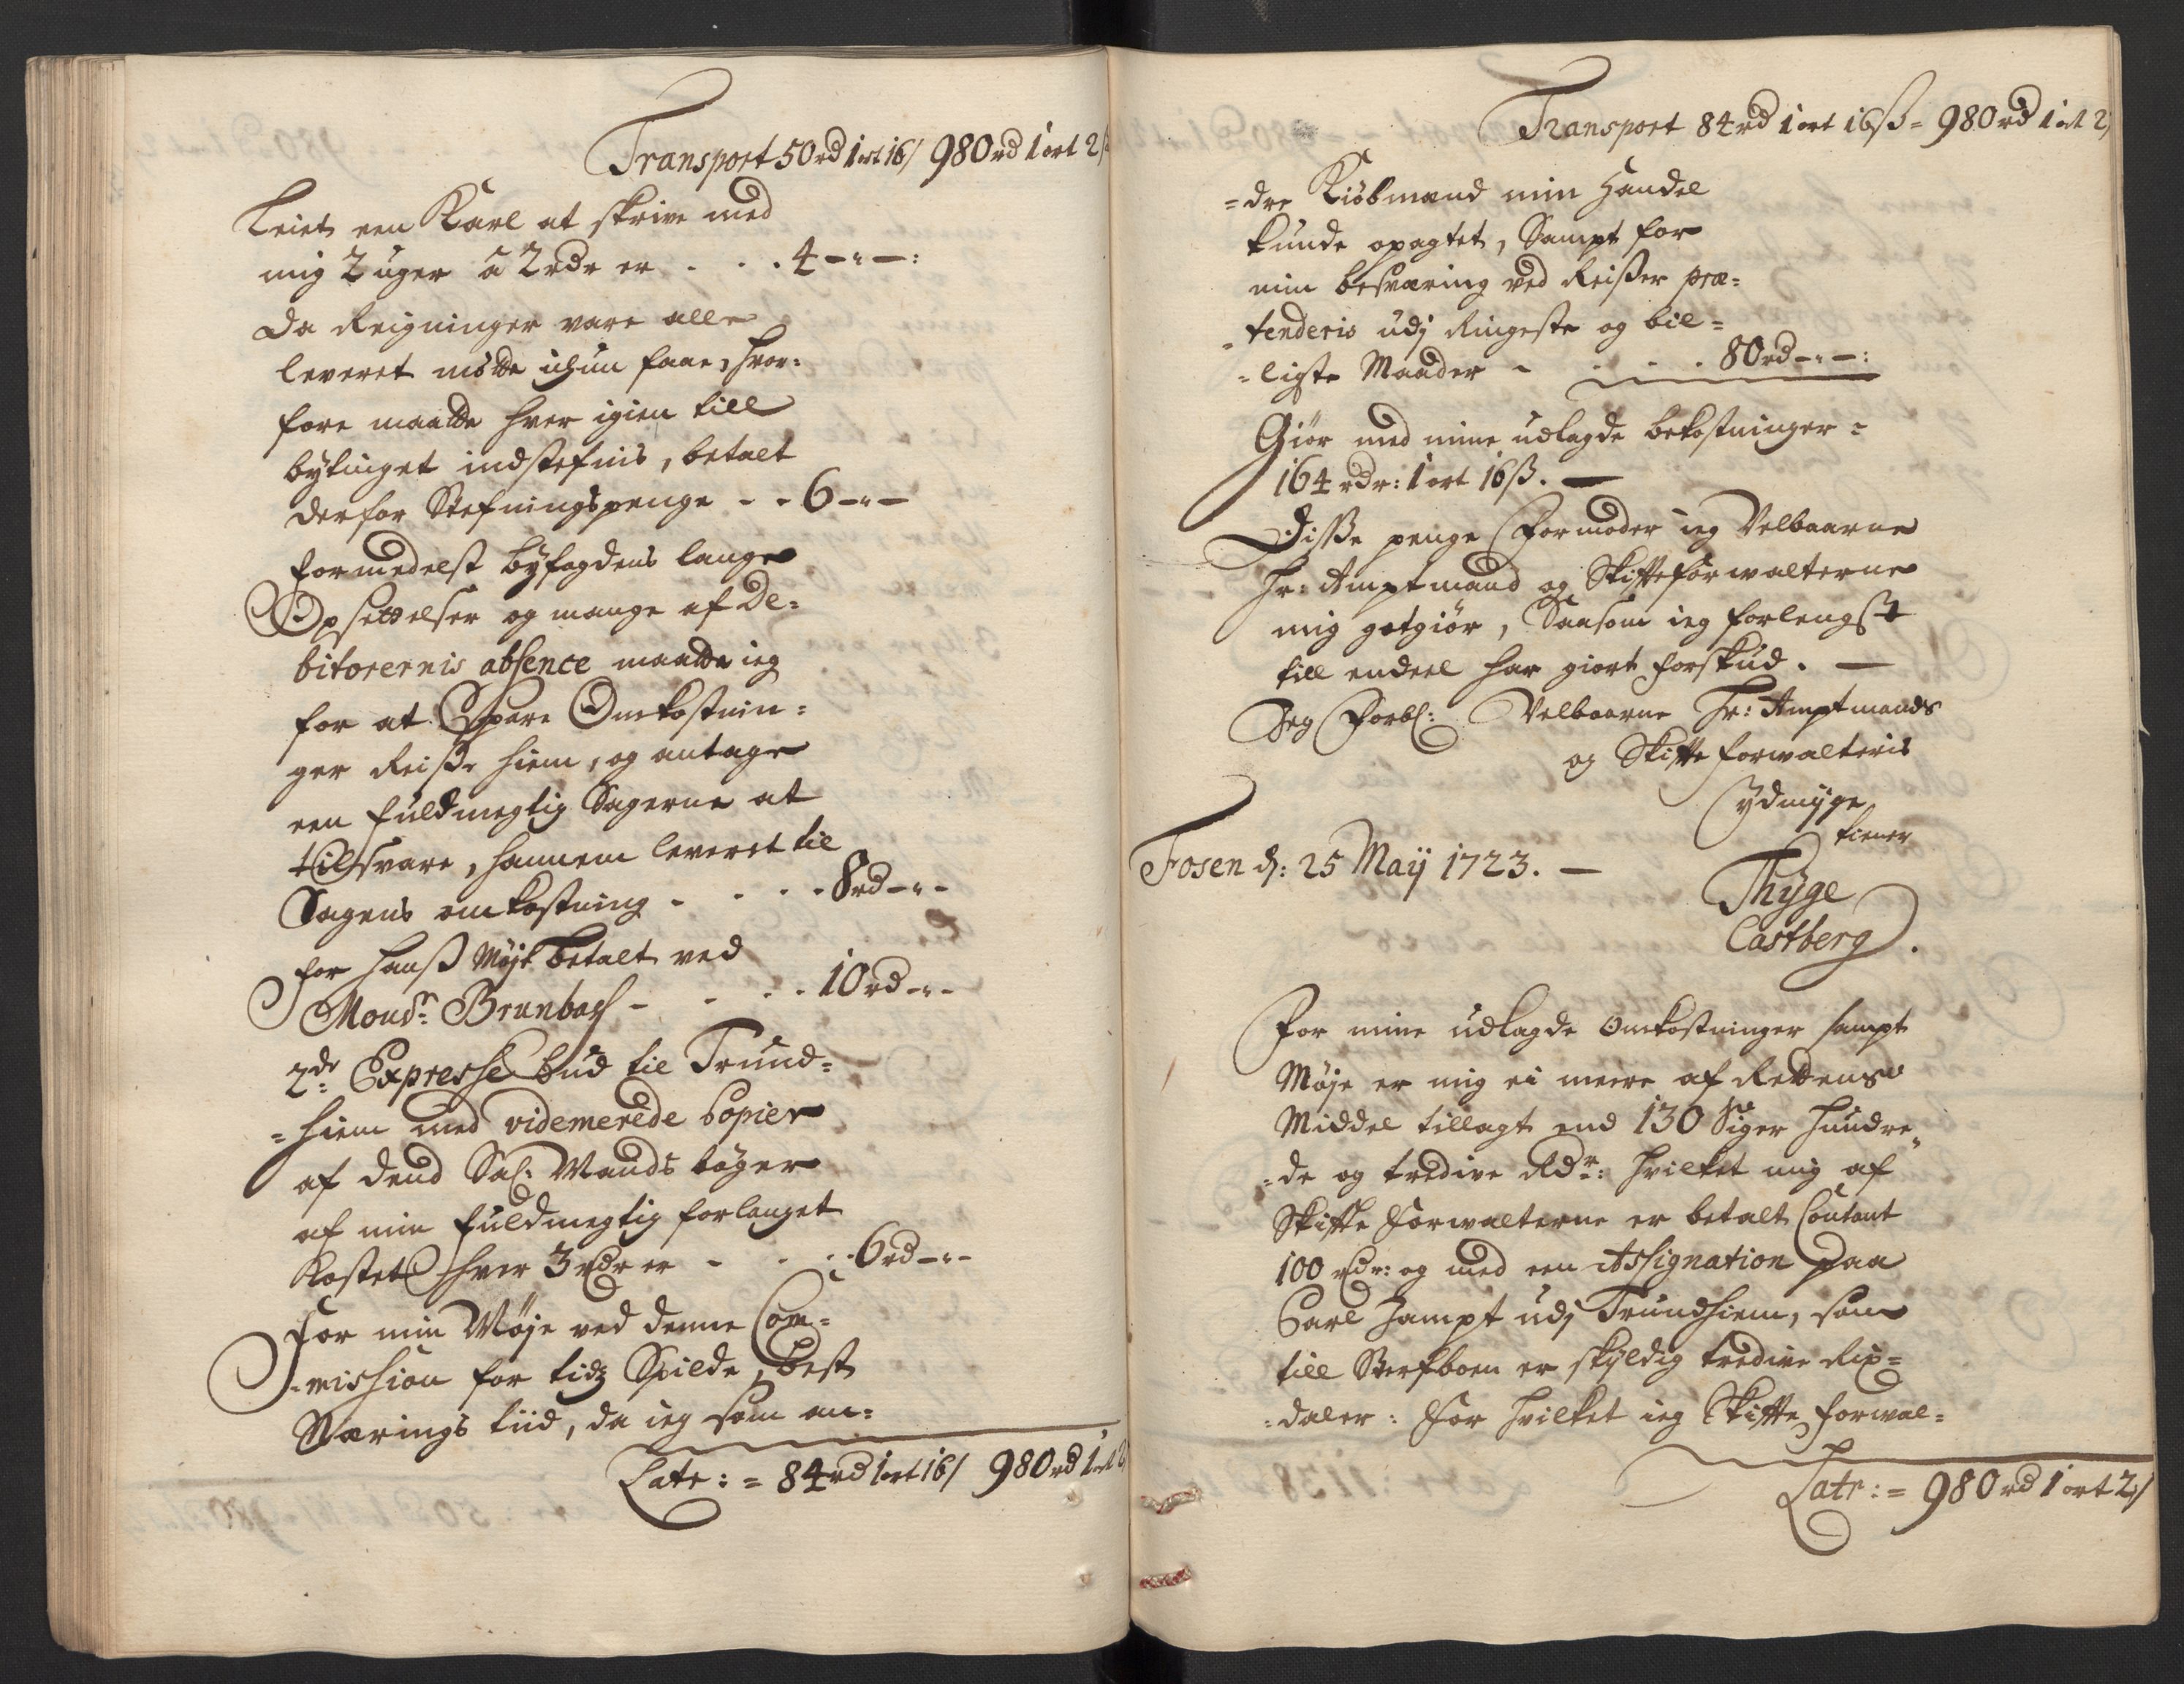 Transport 50rd 1ort 16/ 980rd 1ort 2/
Leiet een Karl at skrive med
mig 2 uger â 2 rdr er . . . 4-"-:
Da Reigninger vare alle
leveret vilde ej faae, hvor:
fore maatte hver igien till
bytinget indstefnis, betalt
derfor Stefningspenge - - 6-"-
formedelst byfogdens lange
Opsettelser og mange af De=
bitorernis absence maatte ieg
for at Spare Omkostnin=
ger Reise hiem, og antage
een fuldmegtig Sagerne at
tilsvare, hannem leveret til
Sagens omkostning - - - - 8rd-"-
for hanß Møje betalt ved
Monsr: Brunbach - - - - 10rd-"-
2de: Expresse bud til Trund=
=hiem med videmerede Copier
af dend Sal: Mands bøger
af min fuldmegtig forlanget
Kostet hver 3 rdr er - - - - 6rd-"-
For min Møje ved denne Com=
=mission for tidz Spilde, best
Nærings tiid, da ieg som an=
Latr: = 84rd 1ort 16/ 980rd 1ort 2/
Transport 84rd 1ort 16ß = 980rd 1ort 2/
=dre Kiöbmænd min Handel
kunde opagtet, Sampt for
min besværing ved Reißer præ=
=tenderis udj Ringeste og bil=
=ligste Maader - - - - 80rd-"-:
Giør med mine udlagde bekostninger =
164 rdr: 1 ort 16ß. —
Disse penge formoder ieg Velbaarne
Hr: Amptmand og Skifteforwalterne
mig gotgiør, Saasom ieg forlengst
till endeel har giort forskud. —
Jeg forbl: Velbaarne Hr: Amptmands
og Skifte forwalteris
ydmyge
tiener
Fosen d: 25 Maij 1723. —
Thyge
Castberg.
For mine udlagde Omkostninger sampt
Møje er mig ei meere af Rettens
Middel tillagt end 130 Siger Hundre
=de og tredive Rdr: hvilket mig af
Skifte Forwalterne er betalt Contant
100 rdr: og med een Assignation paa
Carl Hampt udj Trundhiem, som
till Sterfboen er skyldig tredive Rix=
=daler: For hvilket ieg Skifte forwal=
Latr: = 980rd 1ort 2/